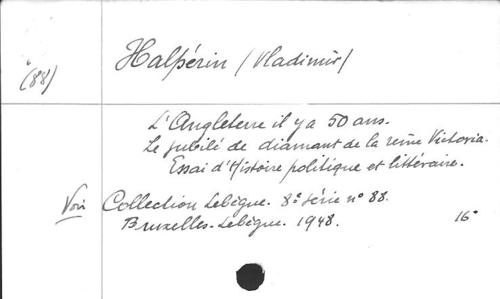 Halpérin (Vladimir)
(88)
L'Angleterre il y a 50 ans.
Le jubilé de diamant de la reine Victoria.
Essai d'Histoire politique et littéraire.
Voir Collection Lebègue. 8e série no 88.
Bruxelles. Lebègue. 1948. 16°